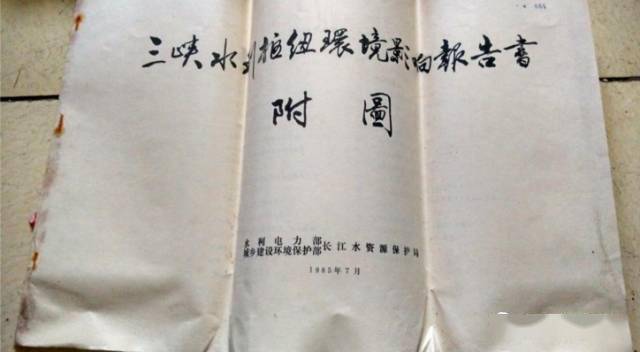 三峡水利枢纽環境影响報告書
附圖
水利电力部
城乡建设环境保护部 长江水资源保护局
1985年7月